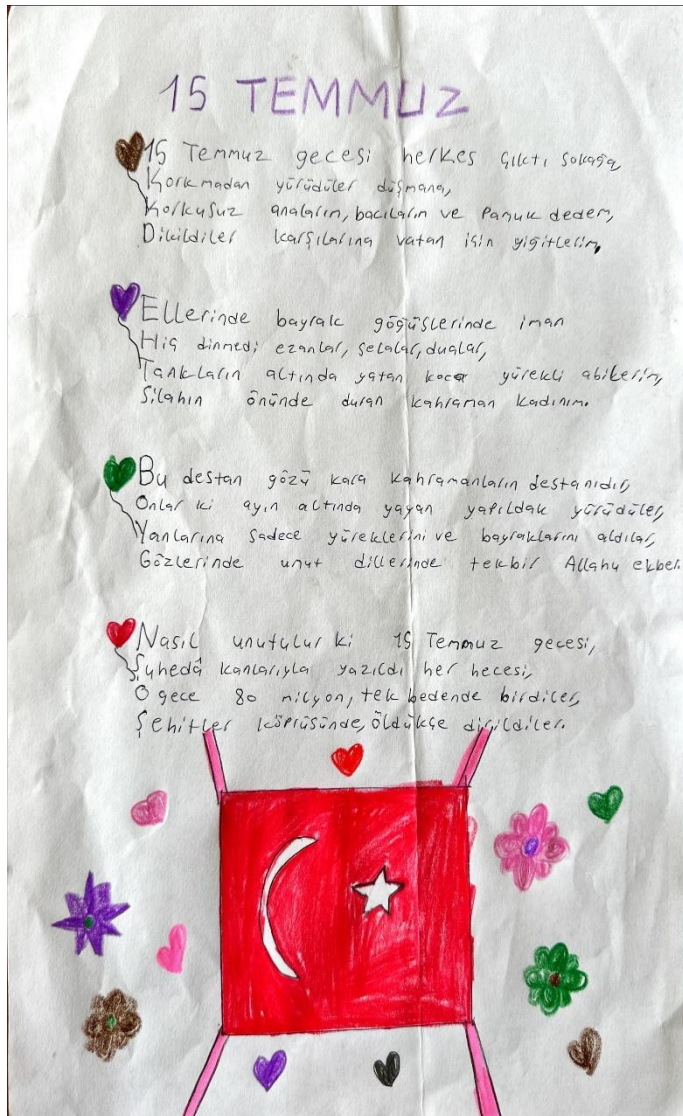 15 TEMMUZ
15 Temmuz gecesi herkes çıktı sokağa,
Korkmadan yürüdüler düşmana,
Korkusuz anaların, bacıların ve Pamuk dedem,
Dikildiler karşılarına vatan için yiğitlerim,
Ellerinde bayrak göğüslerinde iman
Hiç dinmedi ezanlar, selalar, dualar,
Tankların altında yatan koca yürekli abilerim,
Silahın önünde duran kahraman kadınım.
Bu destan gözü kara kahramanların destanıdır,
Onlar ki ayın altında yayan yapıldak yürüdüler,
Yanlarına sadece yüreklerini ve bayraklarını aldılar,
Gözlerinde unut dillerinde tekbir Allahu ekber.
Nasıl unutulur ki 15 Temmuz gecesi,
Şuhedâ kanlarıyla yazıldı her hecesi,
O gece 80 milyon, tek bedende birdiler,
Şehitler köprüsünde, öldükçe dirildiler.